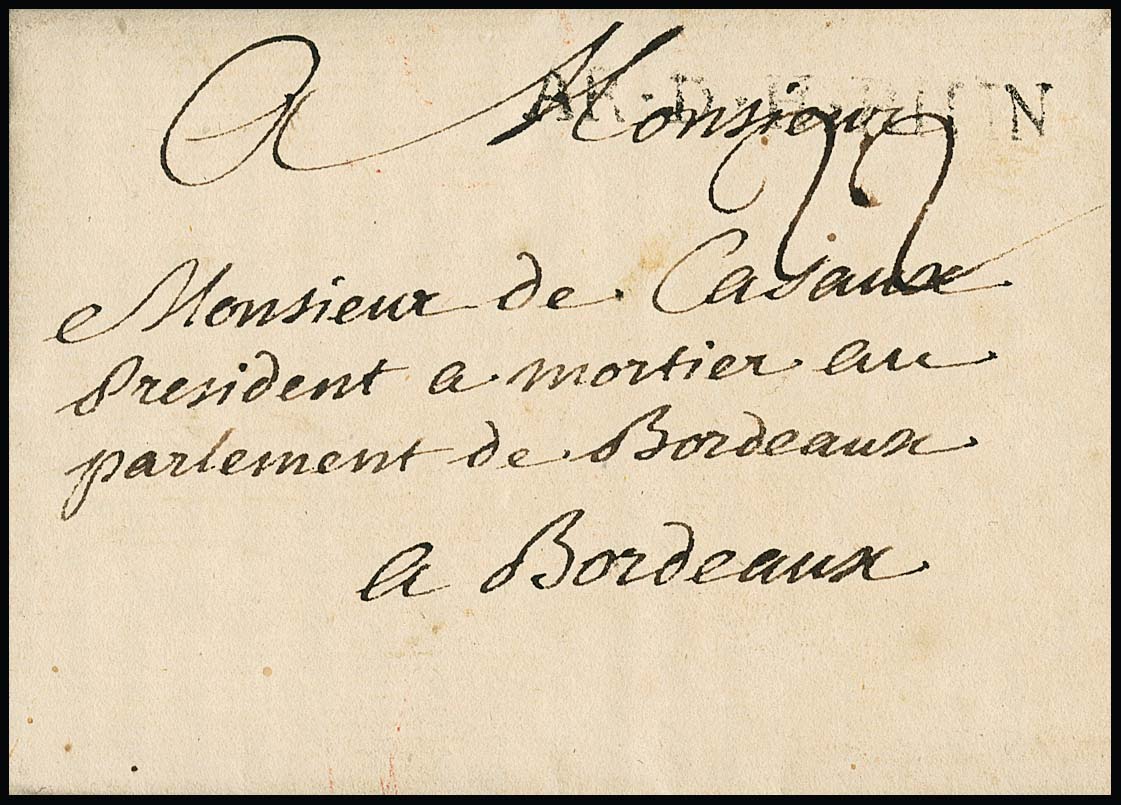 A Monsieur
AR·D·H·RHIN
Monsieur de Casaux
President a mortier au
parlement de Bordeaux
a Bordeaux